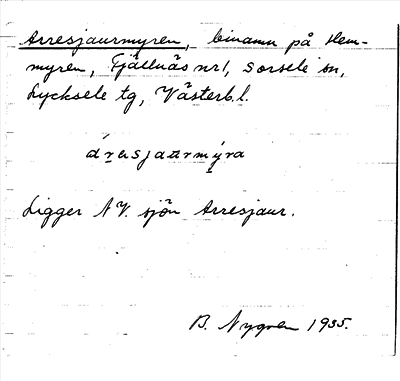 Arresjaurmyren, binamn på Hem-
myren, Fjällnäs nr 1, Sorsele sn,
Lycksele tg, Västerb. l.
áresjaurmýra
Ligger N.V. sjön Arresjaur.
B. Nygren 1935.